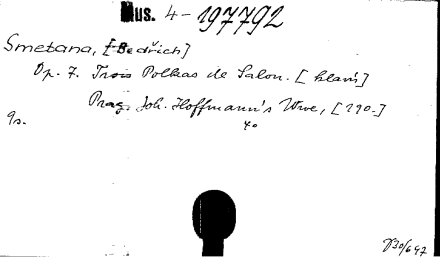 Mus. 4-197792
Smetana, [Bedřich]
Op. 7. Trois Polkas de Salon. [klav.]
Prag, Joh. Hoffmann's Wwe, [290.]
4o
9s.